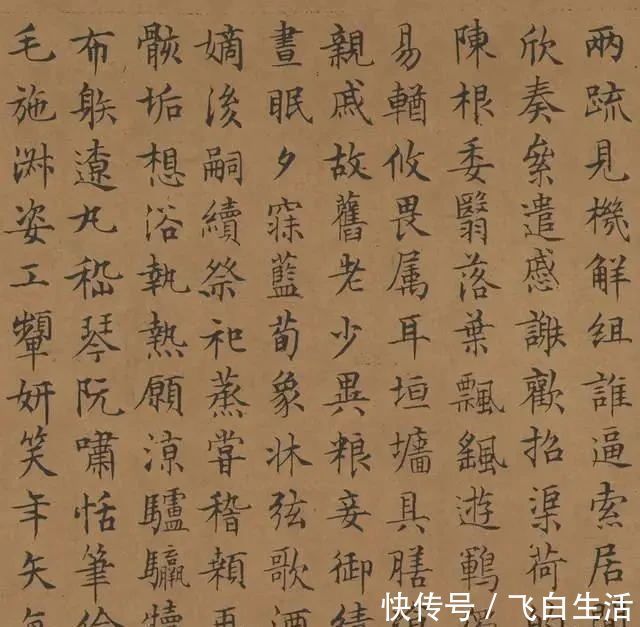 兩疏見機解組誰逼索居
欣奏絫遣慼謝歡招渠荷
陳根委翳落葉飄颻遊鵾獨
易輶攸畏属耳垣墻具膳
親戚故舊老少異粮妾御績
晝眠夕寐藍荀象牀弦歌酒
嫡後嗣續祭祀蒸嘗稽顙再
骸垢想浴執熱願涼驢驘犢
布躲遼丸嵇琴阮嘯恬筆倫
毛施淑姿工顰妍笑年矢每
快传号/飞白生活